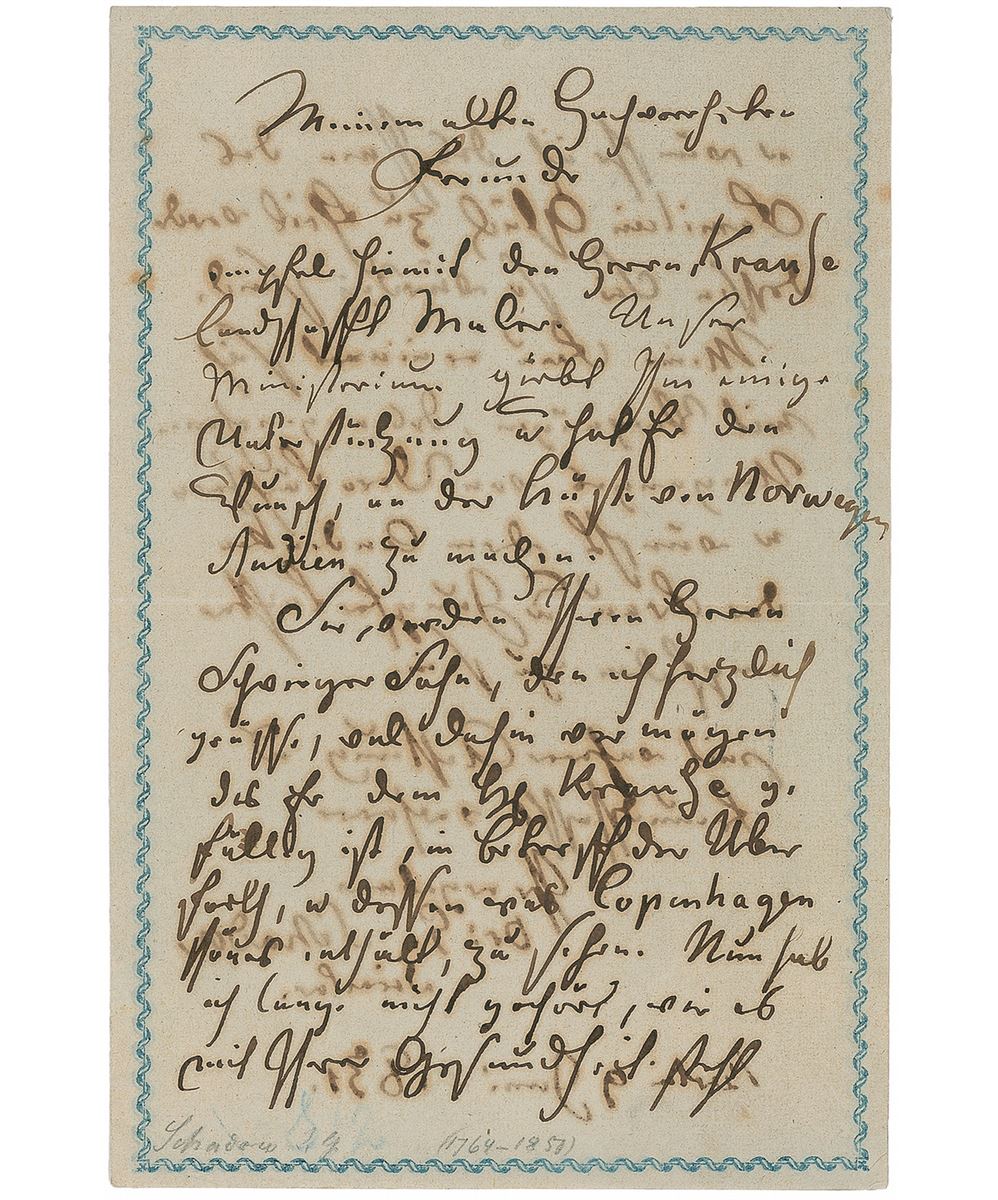 Meinem alten Hochverehrten
Freunde
empfele hiemit den Herrn Krause
Landschafft Maler. Unser
Ministerium giebt Ihm einige
Unterstützung u hat Er den
Wunsch, an der Küste von Norwegen
Studien zu machen.
Sie werden Ihren Herrn
Schwieger Sohn, den ich herzlich
grüsse, wol dahin vermögen
das Er dem H Krause ge
fällig ist, in betreff der Uber
farth, u dessen was Copenhagen
schönes enthält, zu sehen. Nun hab
ich lange nicht gehört, wie es
mit Ihrer Gesundheit steht
Schadow
(1764-1850)